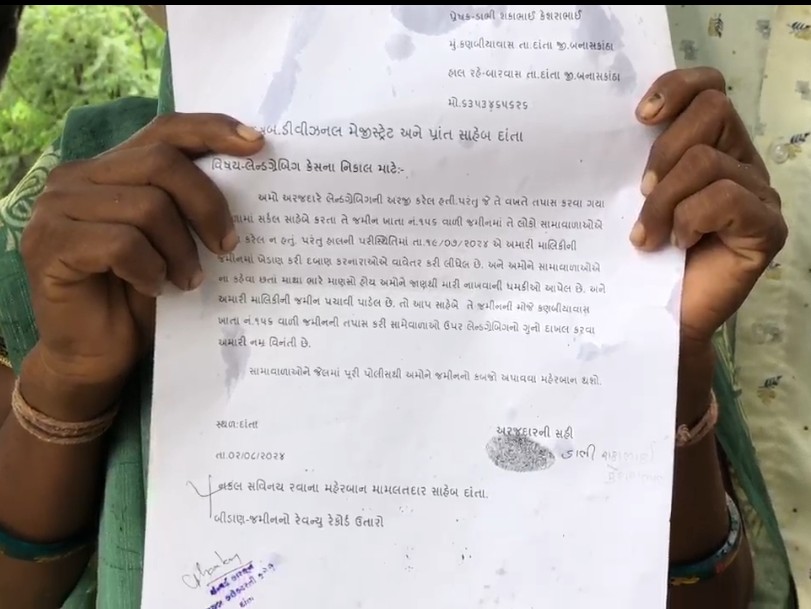 પ્રેષક-ડાભી શંકાભાઈ કેશરાભાઈ
મુ.કણબીયાવાસ તા.દાંતા જી.બનાસકાંઠા
હાલ રહે-બારવાસ તા.દાંતા જી.બનાસકાંઠા
મો.૬૩૫૩૪૬૫૬૨૬
ડીવીઝનલ મેજીસ્ટ્રેટ અને પ્રાંત સાહેબ દાંતા
વિષય-લેન્ડગ્રેબિગ કેસના નિકાલ માટે:-
અમો અરજદારે લેન્ડગ્રેબિગની અરજી કરેલ હતી.પરંતુ જે તે વખતે તપાસ કરવા ગયા
સર્કલ સાહેબે કરતા તે જમીન ખાતા નં.૧૫૬ વાળી જમીનમાં તે લોકો સામાવાળાઓએ
કરેલ ન હતું. પરંતુ હાલની પરીસ્થિતિમાં તા.૧૯/૦૭/૨૦૨૪ એ અમારી માલિકીની
જમીનમાં ખેડાણ કરી દબાણ કરનારાઓએ વાવેતર કરી લીધેલ છે. અને અમોને સામાવાળાઓએ
ના કહેવા છતાં માથા ભારે માણસો હોય અમોને જાણથી મારી નાખવાની ધમકીઓ આપેલ છે. અને
અમારી માલિકીની જમીન પચાવી પાડેલ છે. તો આપ સાહેબે તે જમીનની મોજે કણબીયાવાસ
ખાતા નં.૧૫૬ વાળી જમીનની તપાસ કરી સામેવાળાઓ ઉપર લેન્ડગ્રેબિગનો ગુનો દાખલ કરવા
અમારી નમ્ર વિનંતી છે.
સામાવાળાઓને જેલમાં પૂરી પોલીસથી અમોને જમીનનો કબજો અપાવવા મહેરબાન થશો.
સ્થળ:દાંતા
અરજદારની સહી
ડાભી
તા.૦૨/૦૮/૨૦૨૪
નકલ સવિનય રવાના મહેરબાન મામલતદાર સાહેબ દાંતા.
બીડાણ-જમીનનો રેવન્યુ રેકોર્ડ ઉતારો
દાંતા